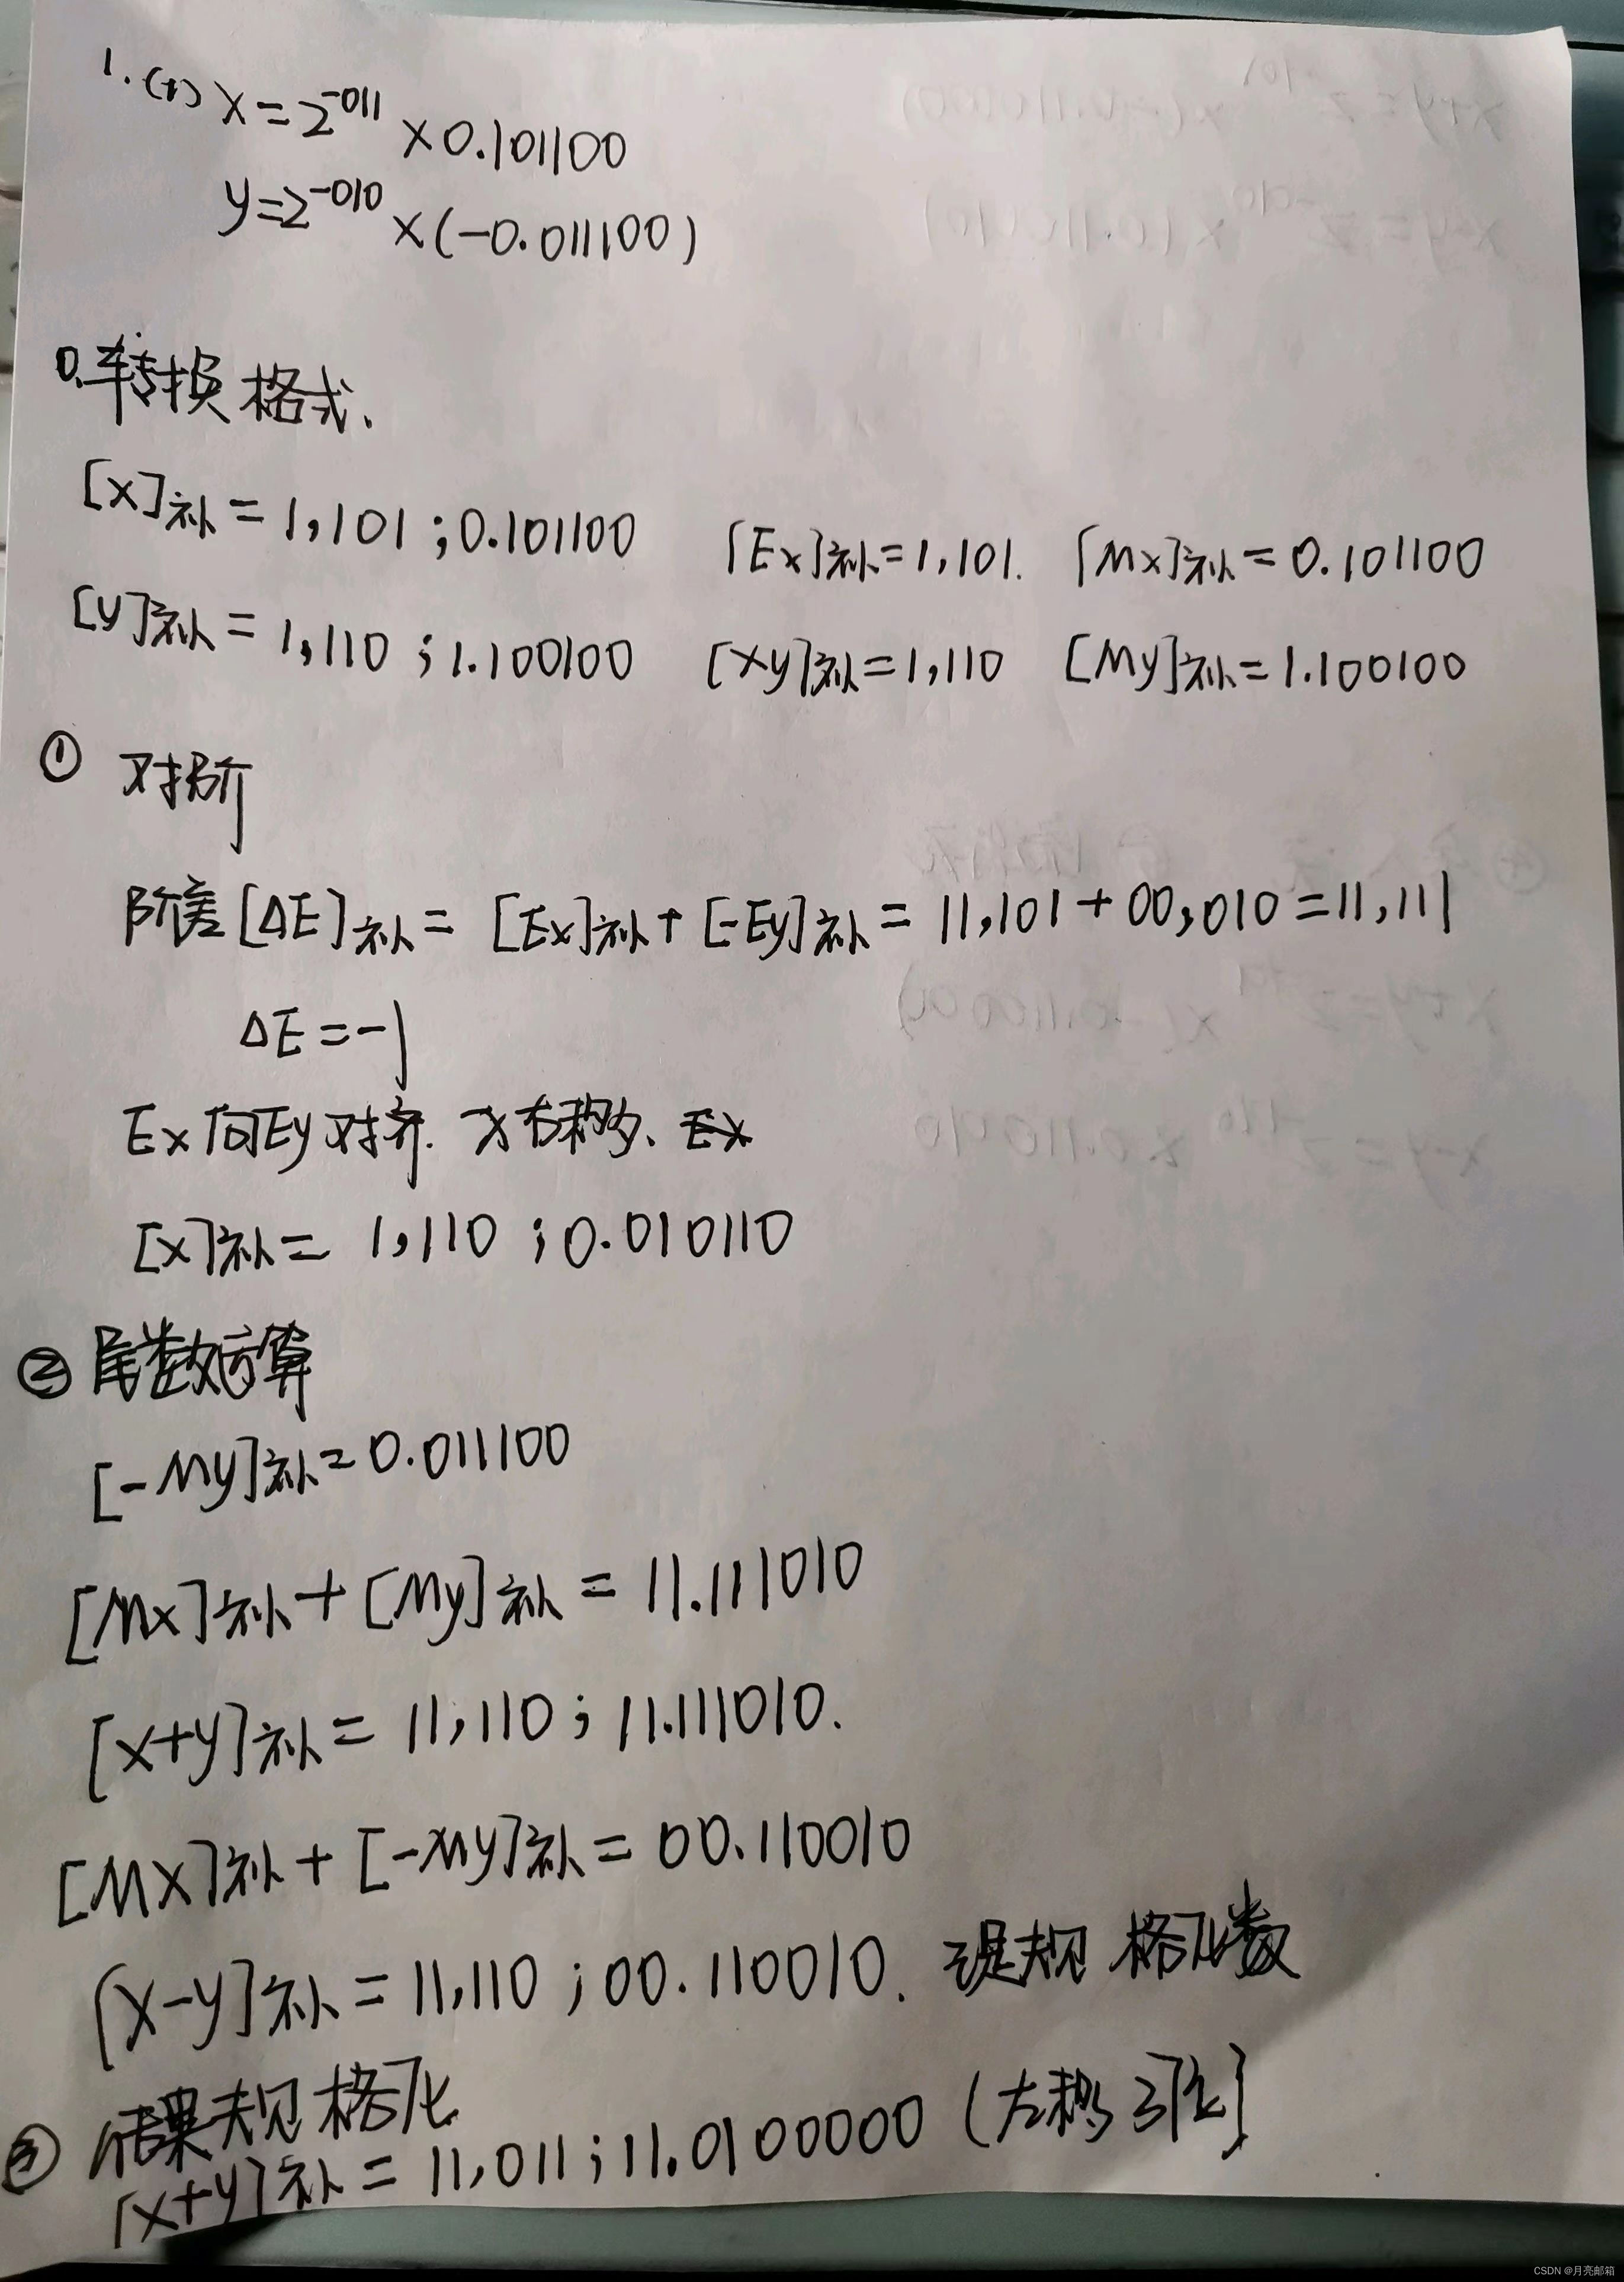 1.(1) x=2^-011 ×0.101100
y=2^-010 ×(-0.011100)
0.转换格式、
[x]补=1,101;0.101100 [Ex]补=1,101. [Mx]补=0.101100
[y]补=1,110;1.100100 [xy]补=1,110 [My]补=1.100100
① 对阶
阶差[ΔE]补= [Ex]补+[-Ey]补= 11,101+00,010=11,111
ΔE=-1
Ex向Ey对齐. x右移、Ex
[x]补= 1,110 ;0.010110
② 尾数运算
[-My]补=0.011100
[Mx]补+[My]补= 11.111010
[x+y]补= 11,110;11.111010.
[Mx]补+[-My]补=00.110010
[x-y]补=11,110;00.110010. 是规格化数
③ 结果规格化
[x+y]补=11,011;11.0100000(左移3位]
CSDN @月亮邮箱